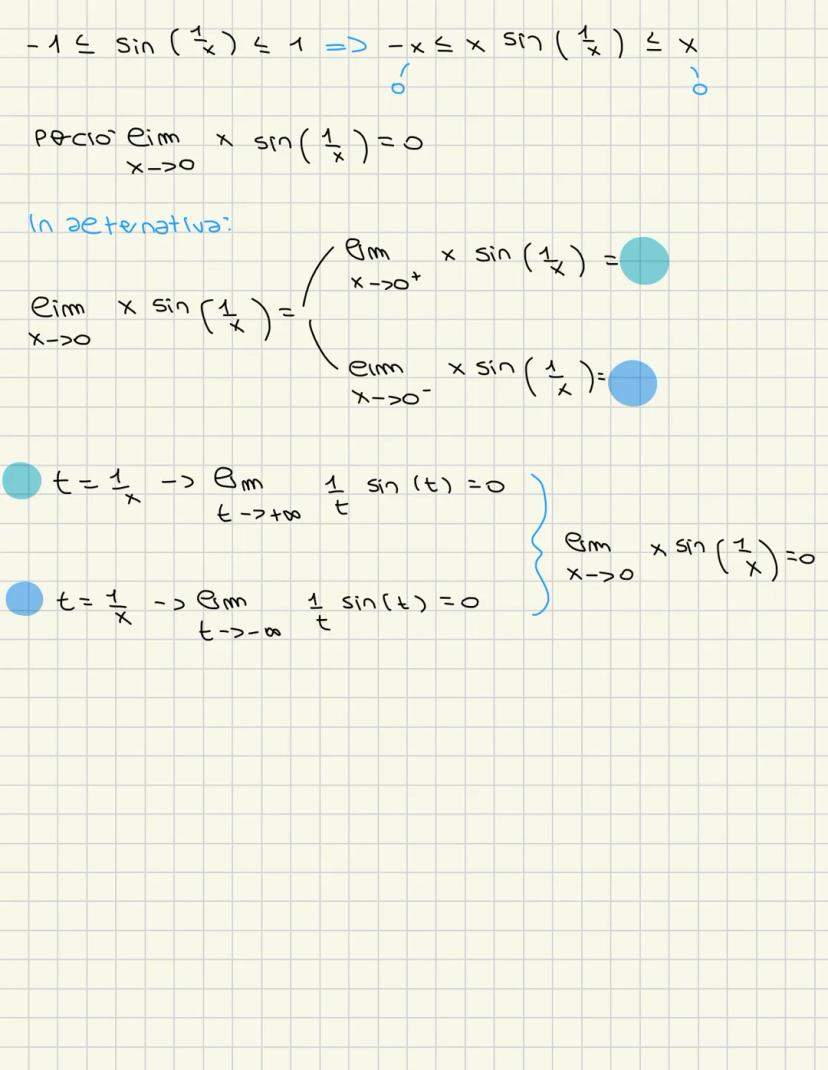 -1 ≤ sin (1/x) ≤ 1 => -x ≤ x sin (1/x) ≤ x
0 0
perciò lim x->0 x sin (1/x) = 0
In alternativa:
lim x->0+ x sin (1/x) =
lim x->0 x sin (1/x) =
lim x->0- x sin (1/x) =
t = 1/x -> lim t->+∞ 1/t sin (t) = 0
lim x->0 x sin (1/x) = 0
t = 1/x -> lim t->-∞ 1/t sin(t) = 0